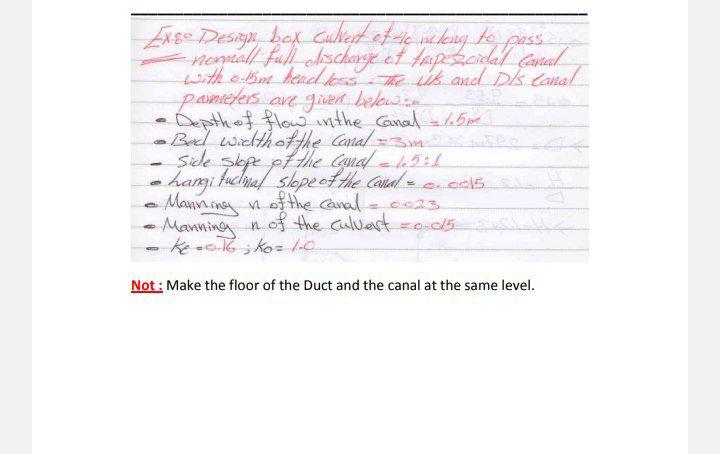 Ex8: Design box Culvert of 40 m long to pass
normall full discharge of trapezoidal Canal
with 0.15m head loss. The U/s and D/s Canal
parmeters are given below:
- Depth of flow in the Canal = 1.5m
- Bed width of the Canal = 3m
- Side slope of the Canal = 1.5:1
- Langitudinal slope of the Canal = 0.0015
- Manning n of the Canal = 0.023
- Manning n of the Culvert = 0.015
- Ke = 0.16 ; Ko = 1.0
Not : Make the floor of the Duct and the canal at the same level.